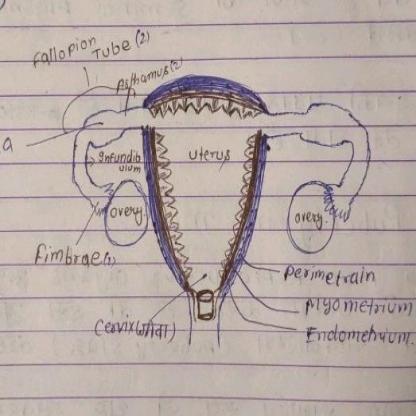 Fallopion
TUBE (2)
Isthamus(2)
a
Infundib
ulum
uterus
overy.
overy.
Fimbrae(1)
Perimetrain
Myometrium
Endometrium.